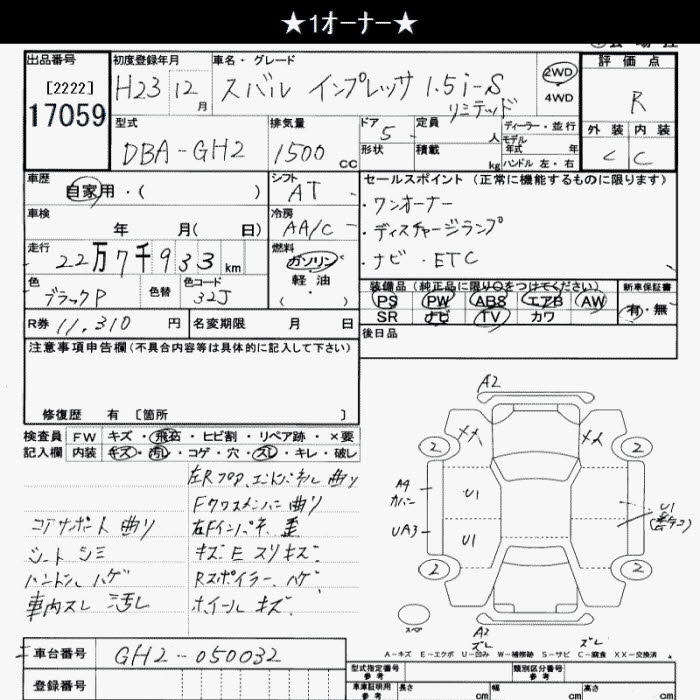 ★1オーナー★
出品番号
[2222]
17059
初度登録年月
H23 12月
車名・グレード
スバル インプレッサ 1.5i-S
リミテッド
2WD
4WD
評価点
R
外装 内装
C C
型式
DBA-GH2
排気量
1500 cc
ドア
5
形状
定員
人
積載
kg
ディーラー・並行
モデル
年式 年
ハンドル 左・右
車歴
自家用・( )
シフト
AT
セールスポイント (正常に機能するものに限ります)
・ワンオーナー
・ディスチャージランプ
・ナビ ・ETC
車検
年 月( 日)
冷房
AA/C
走行
22万7千933km
燃料
ガソリン
軽油
( ・ )
色
ブラックP
色替
色コード
32J
装備品 (純正品に限り○をつけてください)
PS PW ABS エアB AW
SR ナビ TV カワ
新車保証書
有・無
R券 11,310 円
名変期限 月 日
後日品
注意事項申告欄(不具合内容等は具体的に記入して下さい)
修復歴 有 [箇所 ]
検査員
記入欄
FW キズ・飛石・ヒビ割・リペア跡・×要
内装 キズ・汚レ・コゲ・穴・スレ・キレ・破レ
左Rフロア、エンドパネル 曲り
Fクロスメンバー 曲り
コアサポート 曲り
右Fインパネ 歪
シート シミ
キズE スリキズ
ハンドル ハゲ
Rスポイラー ハゲ
車内スレ 汚レ
ホイール キズ
A2
XX XX
2 2
A4
カバー
U1
UA3
U1
U1
2 2
スペア
A2
ズレ
ズレ
A-キズ E-エクボ U-凹み W-補修跡 S-サビ C-腐食 XX-交換済
車台番号 GH2-050032
登録番号
型式指定番号
参考
類別区分番号
参考
車庫証明用
参考
長さ cm
幅 cm
高さ cm